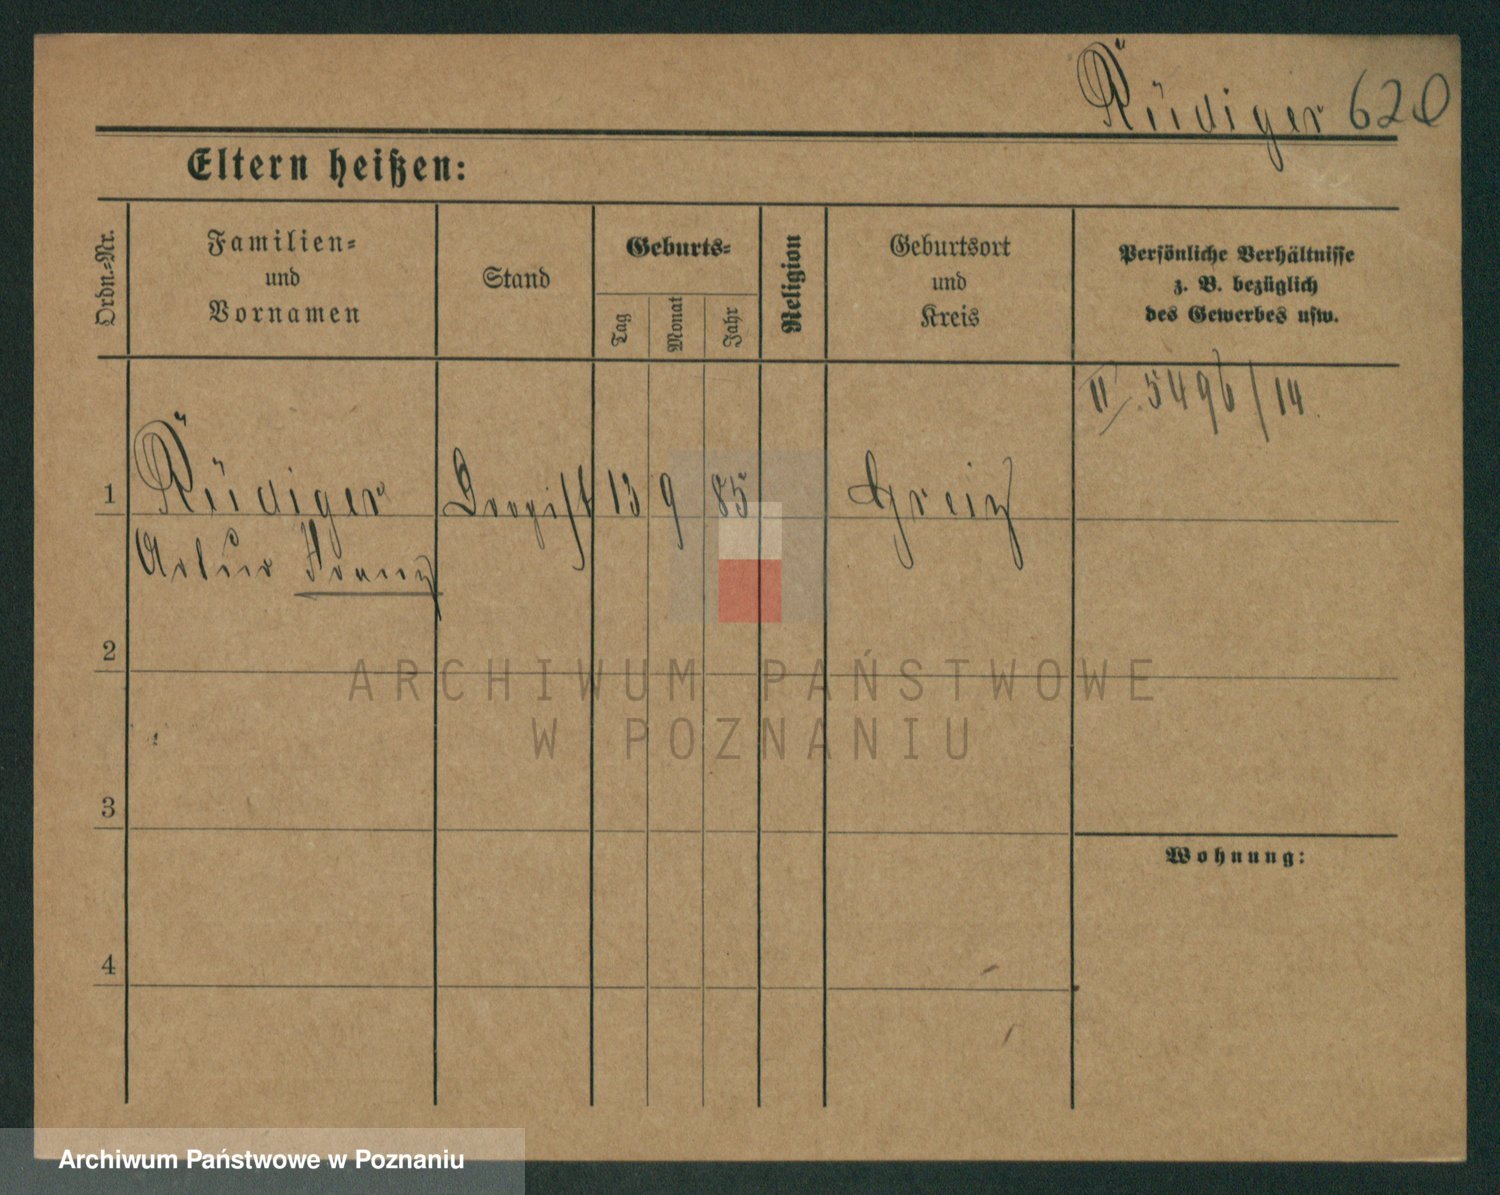 Rüdiger 620
Eltern heißen:
Ordn.=Nr.
Familien=
und
Vornamen
Stand
Geburts=
Tag
Monat
Jahr
Religion
Geburtsort
und
Kreis
Persönliche Verhältnisse
z. B. bezüglich
des Gewerbes usw.
II 5496/14
1 Rüdiger Drogist 13 9 85 Greiz
Artur Franz
2
3
4
Wohnung:
ARCHIWUM PAŃSTWOWE
W POZNANIU
Archiwum Państwowe w Poznaniu